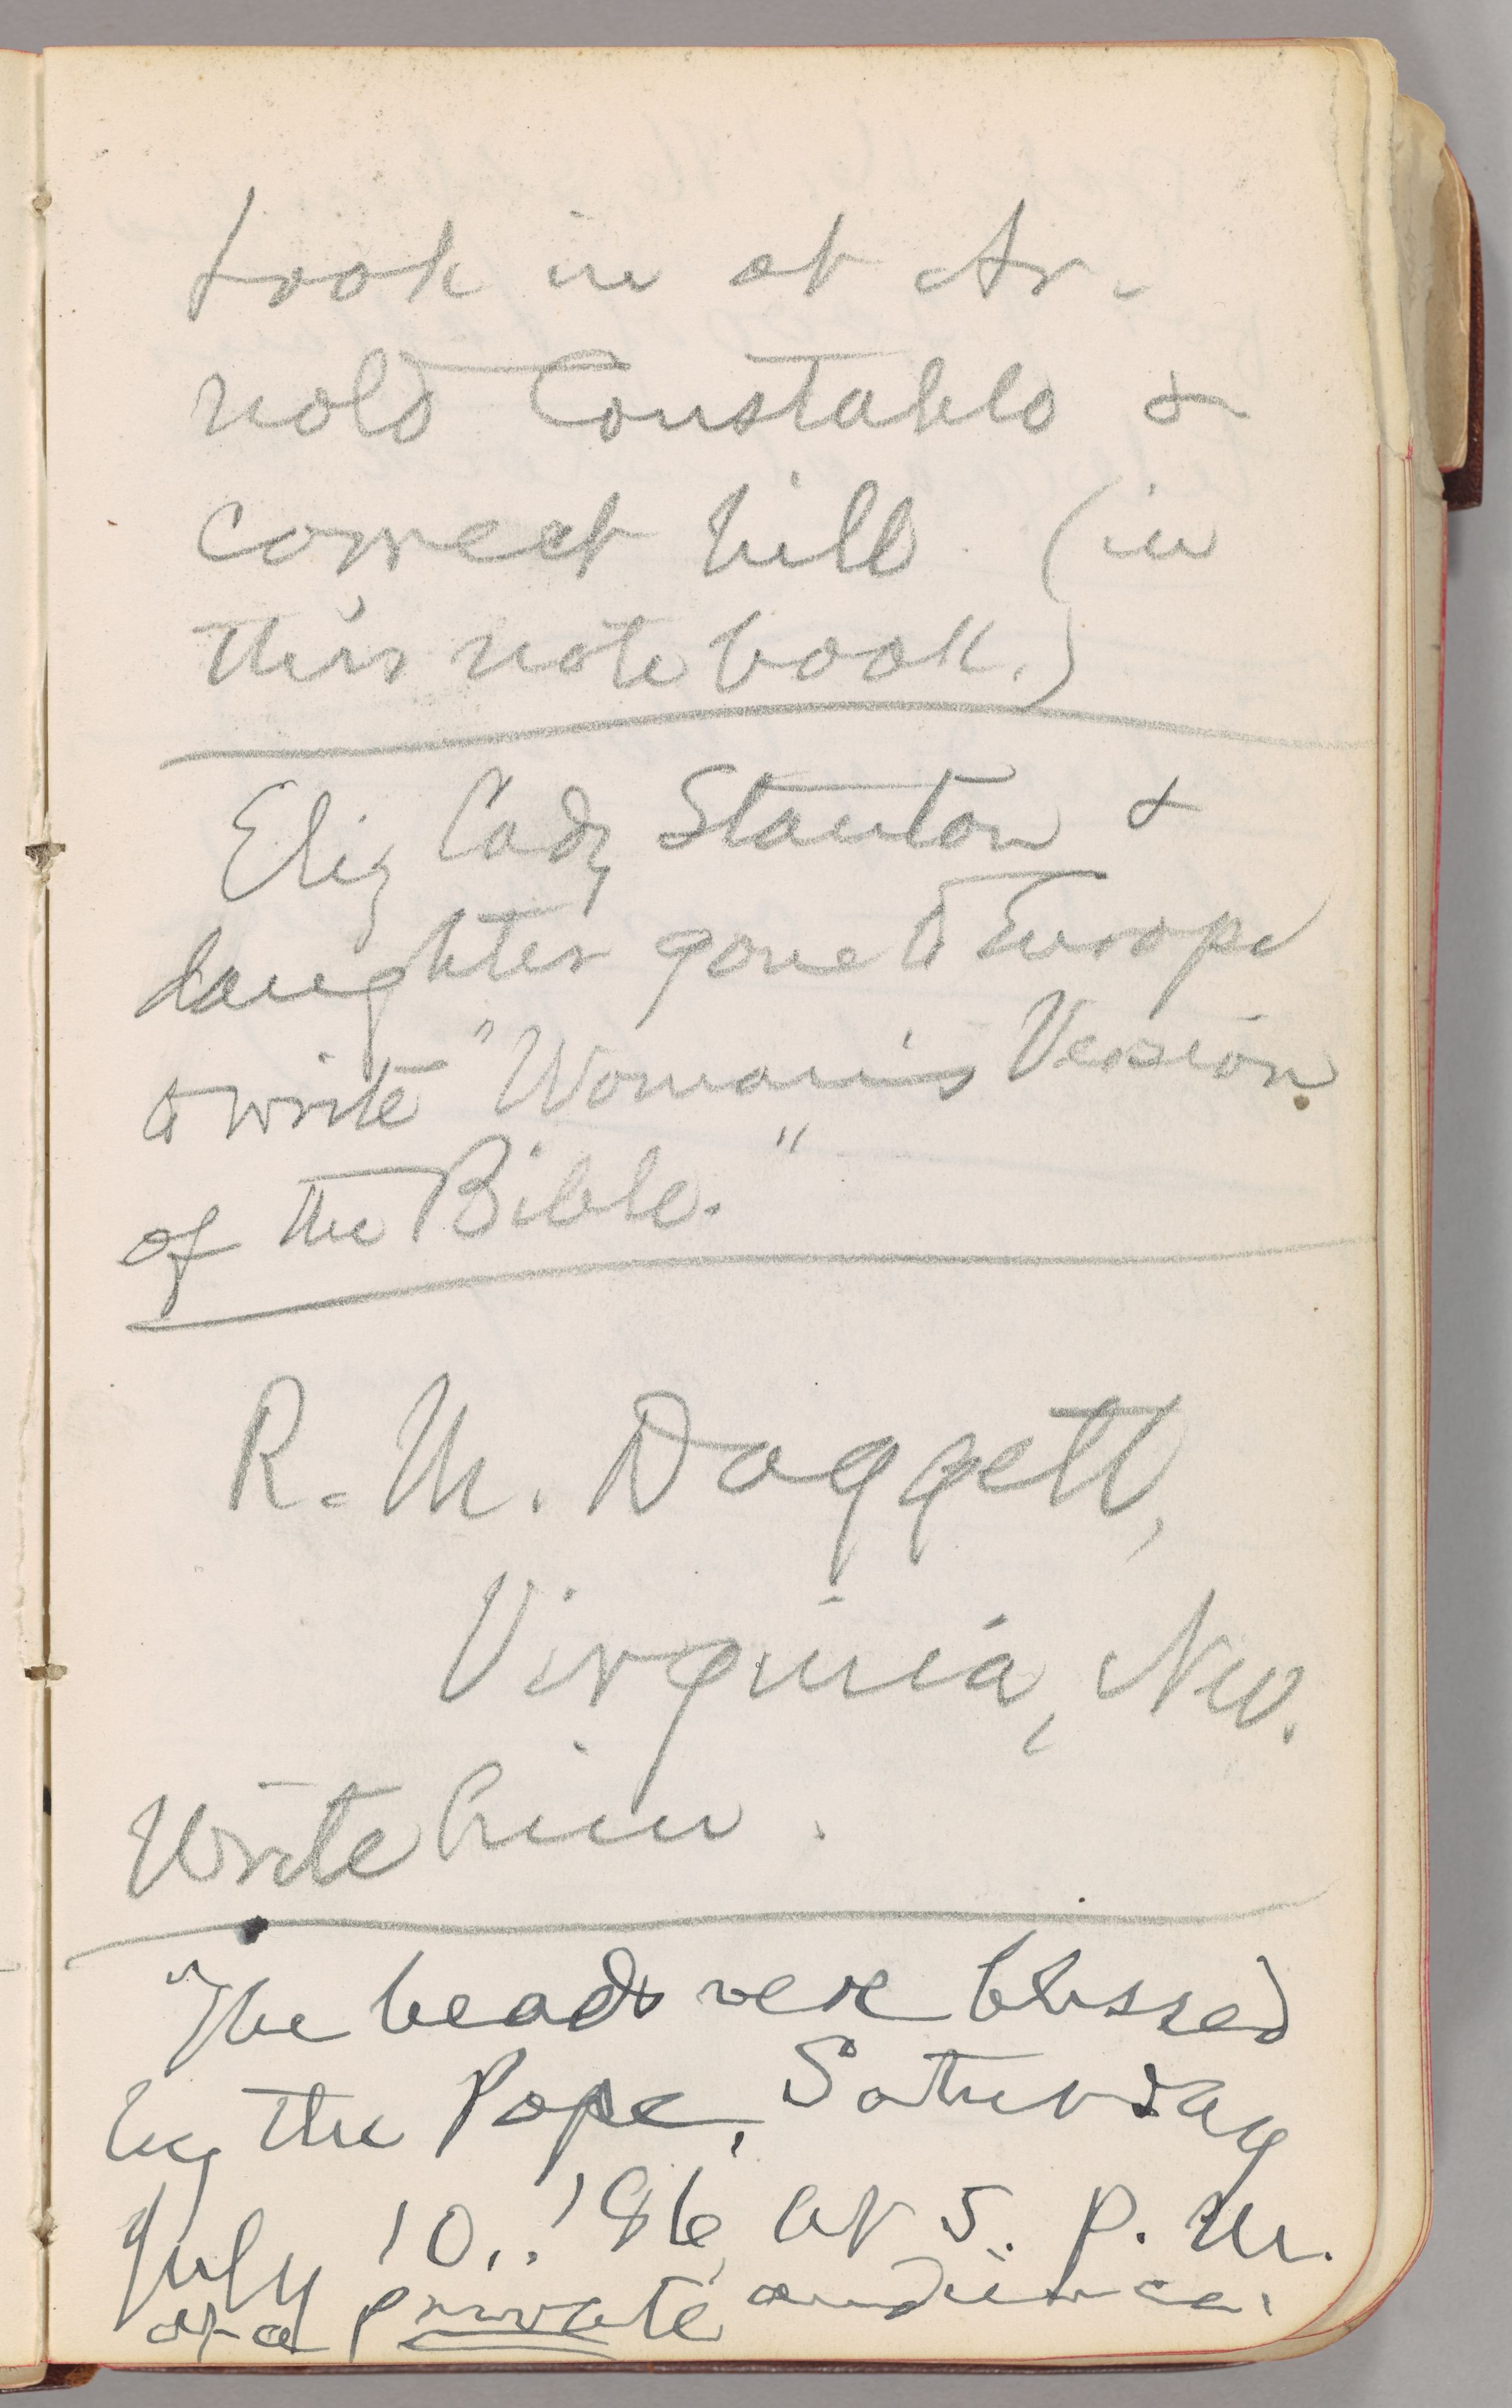 Look in at Ar-
nold Constable &
correct bill. (in
this note book.)
Eliz Cady Stanton &
daughter gone to Europe
to write "Woman's Version
of the Bible."
R. M. Daggett,
Virginia, Nev.
Write him.
The beads were blessed
by the Pope, Saturday
July 10, '86, at 5. P. M.
at a private audience.